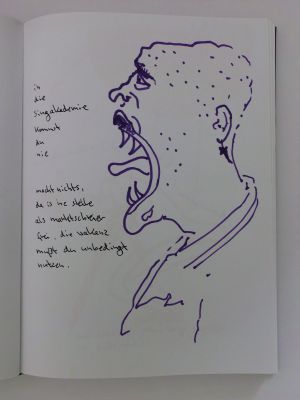 in
die
singakademie
kommst
du
nie
macht nichts,
da is ne stelle
als marktschreier
frei. die vakanz
mußt du unbedingt
nutzen.